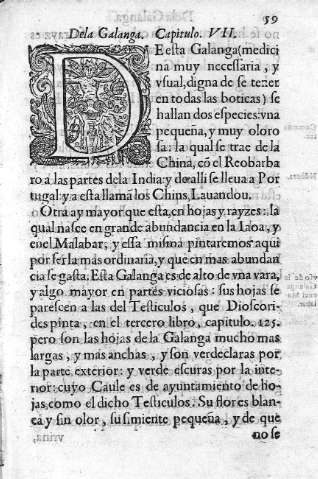 59
Dela Galanga. Capitulo. VII.
DEesta Galanga (medici
na muy necessaria, y
vsual, digna de se tener
en todas las boticas) se
hallan dos especies: vna
pequeña, y muy oloro
sa: la qual se trae de la
China, cõ el Reobarba
ro a las partes dela India: y de alli se lleua a Por
tugal: y a esta llamã los Chins, Lauandou.
Otra ay mayor que esta, en hojas y rayzes: la
qual nasce en grande abundancia en la Iaoa, y
enel Malabar, y essa misma pintaremos aqui
por ser la mas ordinaria, y que en mas abundan
cia se gasta. Esta Galanga es de alto de vna vara,
y algo mayor en partes viciosas: sus hojas se
parescen a las del Testiculos, que Dioscori-
des pinta, en el tercero libro, capitulo. 125.
pero son las hojas de la Galanga mucho mas
largas, y mas anchas, y son verdeclaras por
la parte exterior: y verde escuras por la inte-
rior: cuyo Caule es de ayuntamiento de ho-
jas como el dicho Testiculos. Su flor es blan-
ca y sin olor, su simiente pequeña, y de que
no se